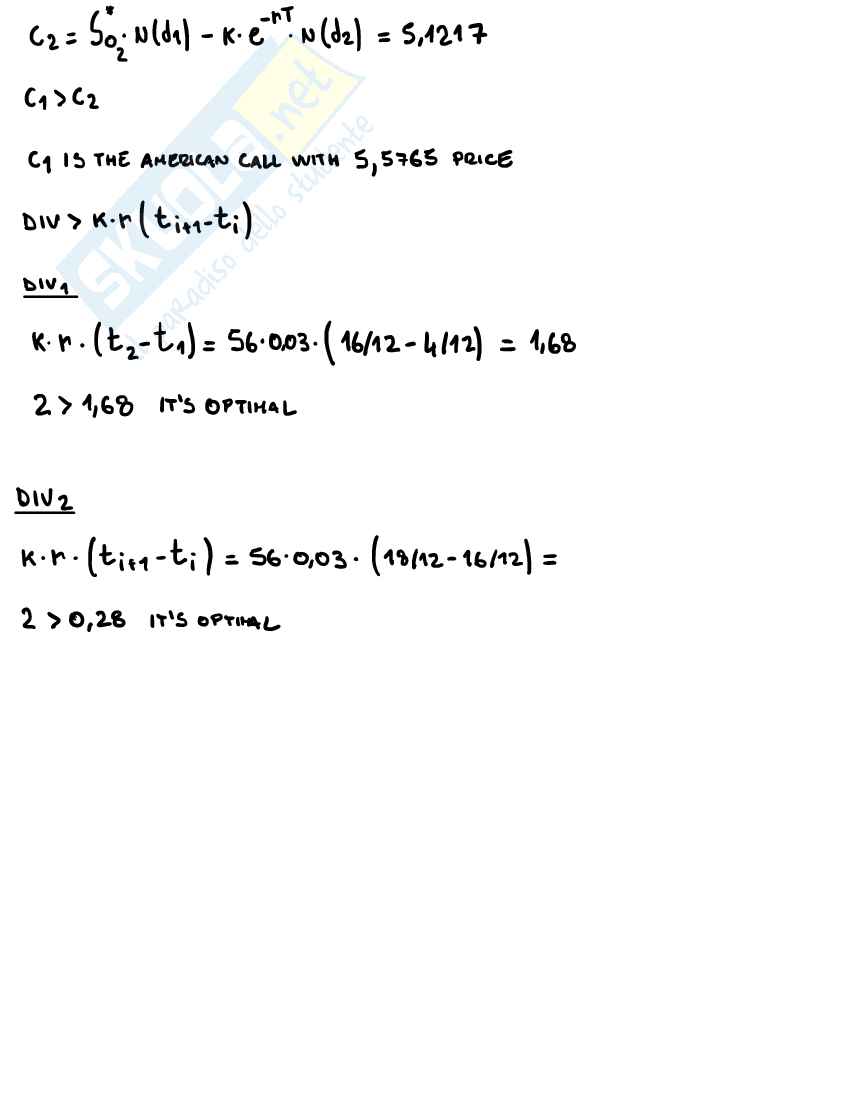 C₂ = S₀₂* · N(d₁) - K · e^-rT · N(d₂) = 5,1217
C₁ > C₂
C₁ IS THE AMERICAN CALL WITH 5,5765 PRICE
DIV > K·r (tᵢ₊₁-tᵢ)
DIV₁
K·r·(t₂-t₁) = 56·0,03·(16/12 - 4/12) = 1,68
2 > 1,68 IT'S OPTIMAL
DIV₂
K·r·(tᵢ₊₁-tᵢ) = 56·0,03·(18/12 - 16/12) =
2 > 0,28 IT'S OPTIMAL
SKUOLA.net
il paradiso dello studente